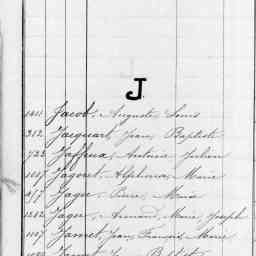 J
1411 Jacob, Auguste Louis
312 Jacquart, Jean Baptiste
723 Jaffeux, Antoine Julien
1117 Jagoret, Alphonse Marie
317 Jagu, Pierre Marie
1242 Jagu, Armand Marie Joseph
1107 Jannet, Jean François Marie